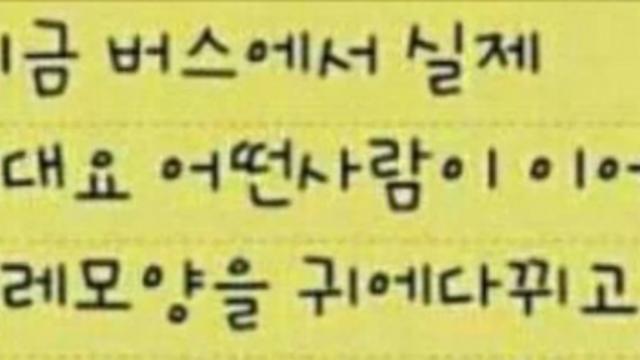 지금 버스에서 실제
대요 어떤사람이 이어
레모양을 귀에다뀌고